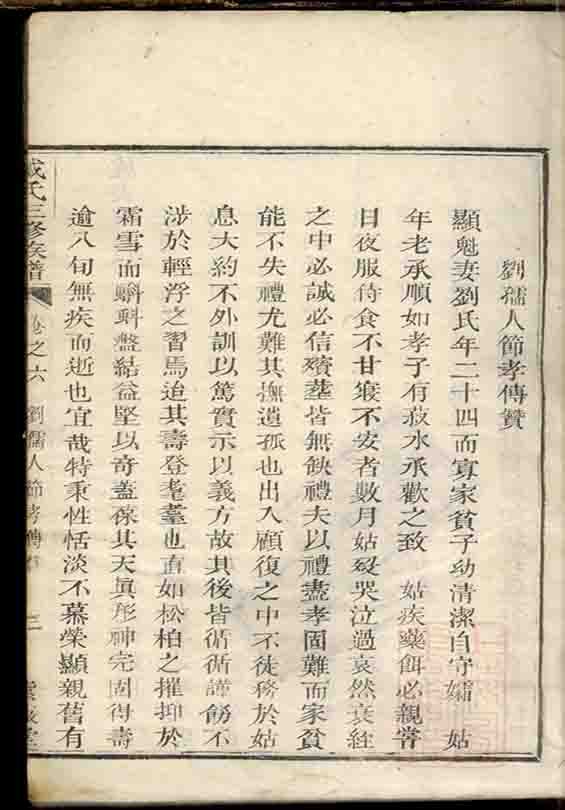 劉孺人節孝傳贊
顯魁妻劉氏年二十四而寡家貧子幼清潔自守孀　姑
年老承順如孝子有菽水承歡之致　姑疾藥餌必親嘗
日夜服侍食不甘寢不安者數月姑歿哭泣過哀然衰絰
之中必誠必信殯塟皆無缺禮夫以禮盡孝固難而家貧
能不失禮尤難其撫遺孤也出入顧復之中不徒務於姑
息大約不外訓以篤實示以義方故其後皆循循謹飭不
涉於輕浮之習焉迨其壽登耄耋也直如松柏之摧抑於
霜雪而蝌蚪盤結益堅以奇蓋葆其天眞形神完固得壽
逾八旬無疾而逝也宜哉特秉性恬淡不慕榮顯親舊有
氏三修族譜　卷之六　劉孺人節孝傳　三